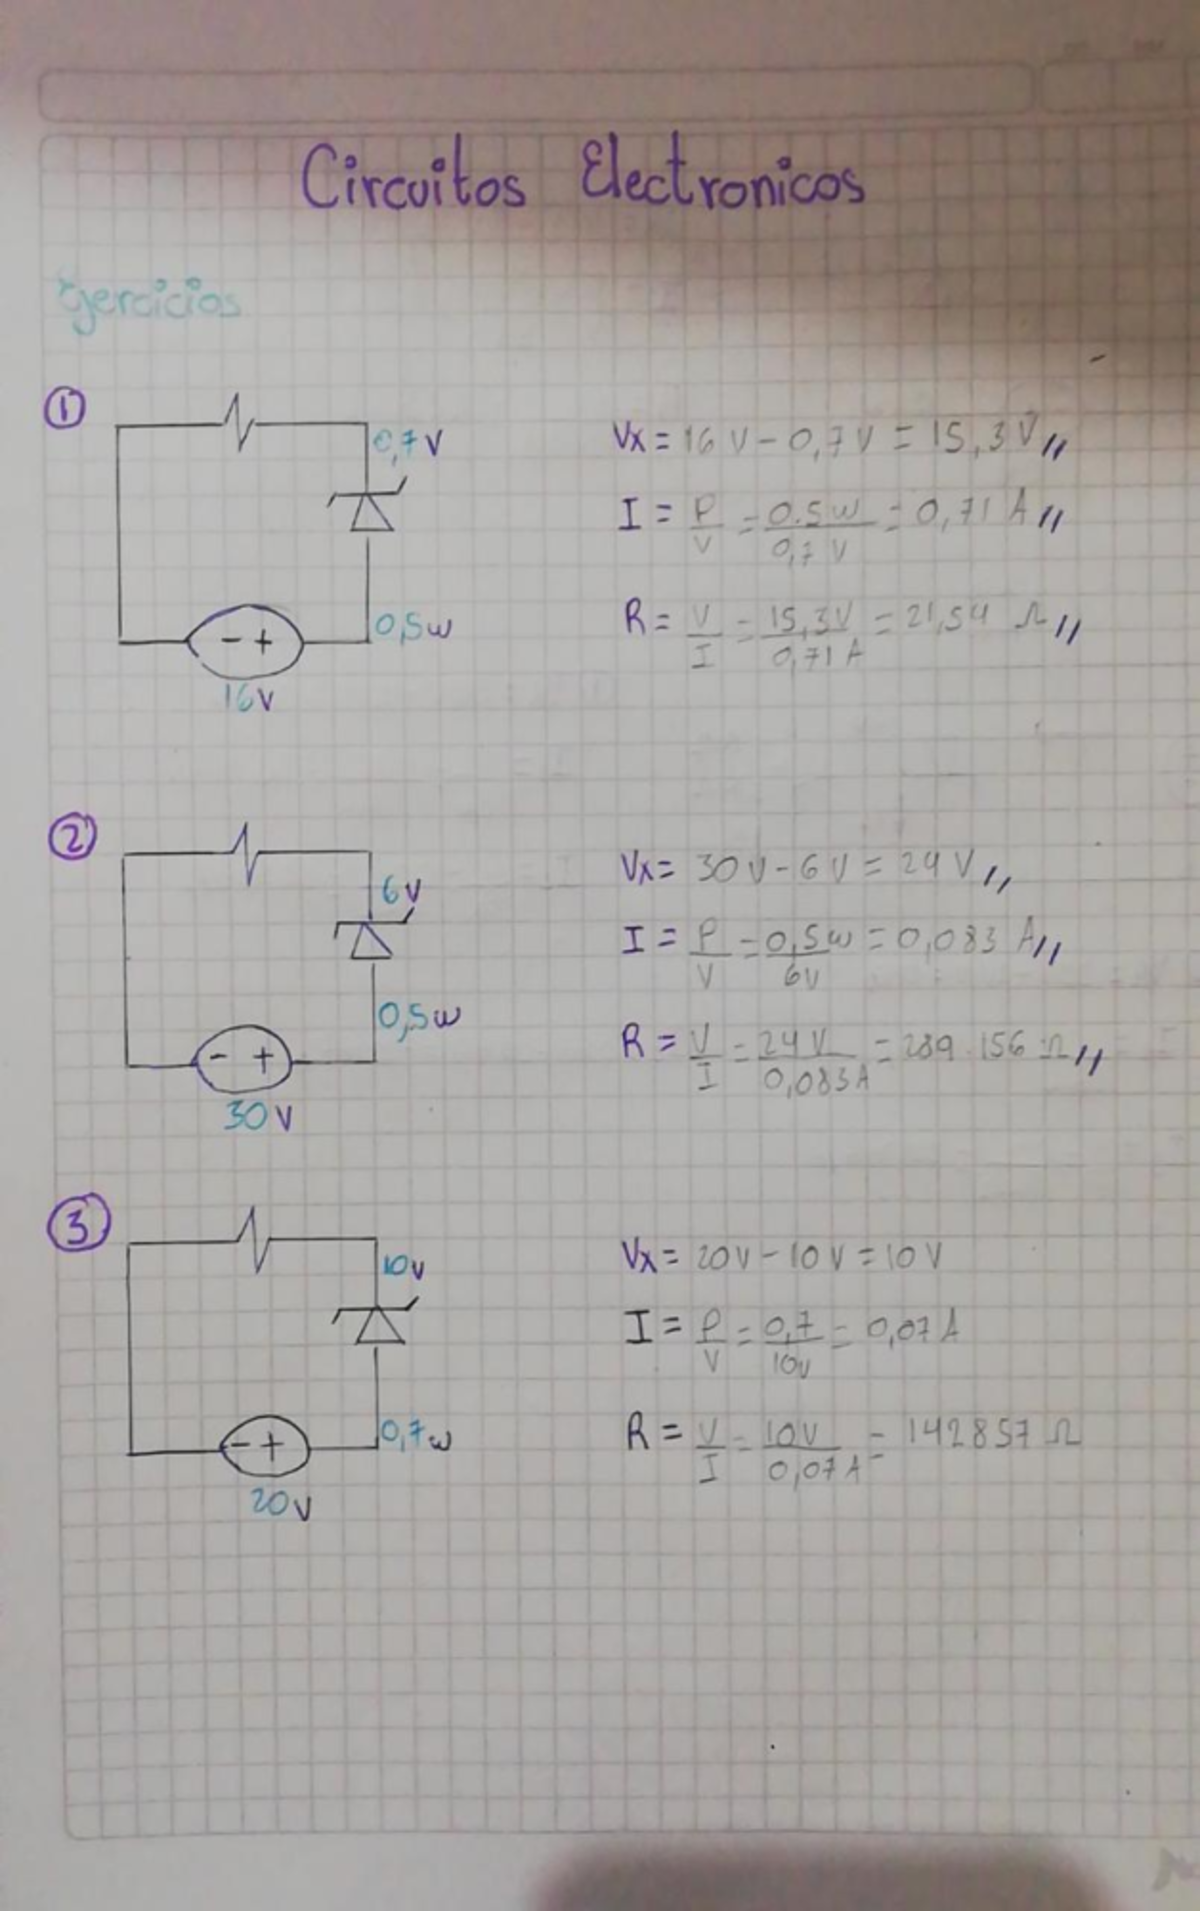 Circuitos Electronicos
Ejercicios
①
0,7 V
0,5 w
- +
16 V
Vx = 16 V - 0,7 V = 15,3 V //
I = P/V = 0.5w/0,7 V = 0,71 A //
R = V/I = 15,3V/0,71 A = 21,54 Ω //
②
6 V
0,5 w
- +
30 V
Vx = 30 V - 6 V = 24 V //
I = P/V = 0,5w/6V = 0,083 A //
R = V/I = 24 V/0,083A = 289 156 Ω //
③
10 V
0,7 w
- +
20 V
Vx = 20V - 10 V = 10 V
I = P/V = 0,7/10V = 0,07 A
R = V/I = 10V/0,07 A = 142857 Ω